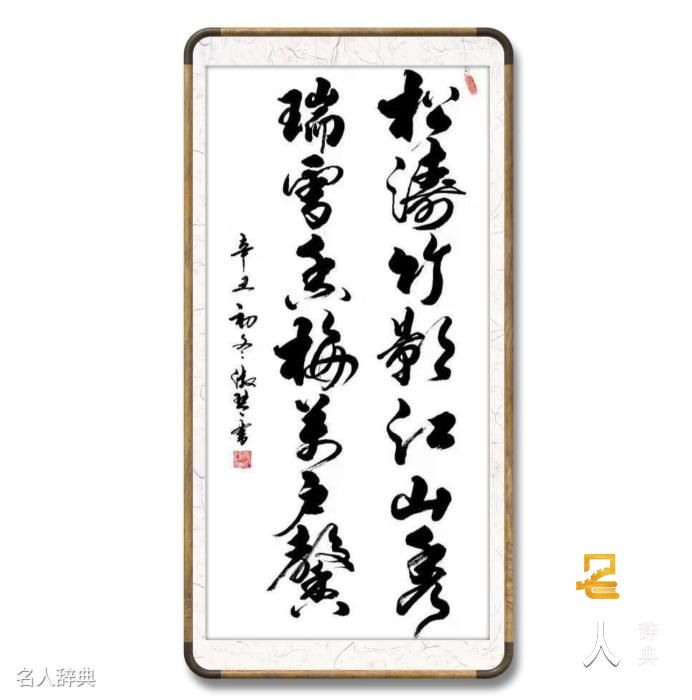 松涛竹影江山秀
瑞雪香梅万户馨
辛丑初冬淑琴书
名人辞典
名人
辞典